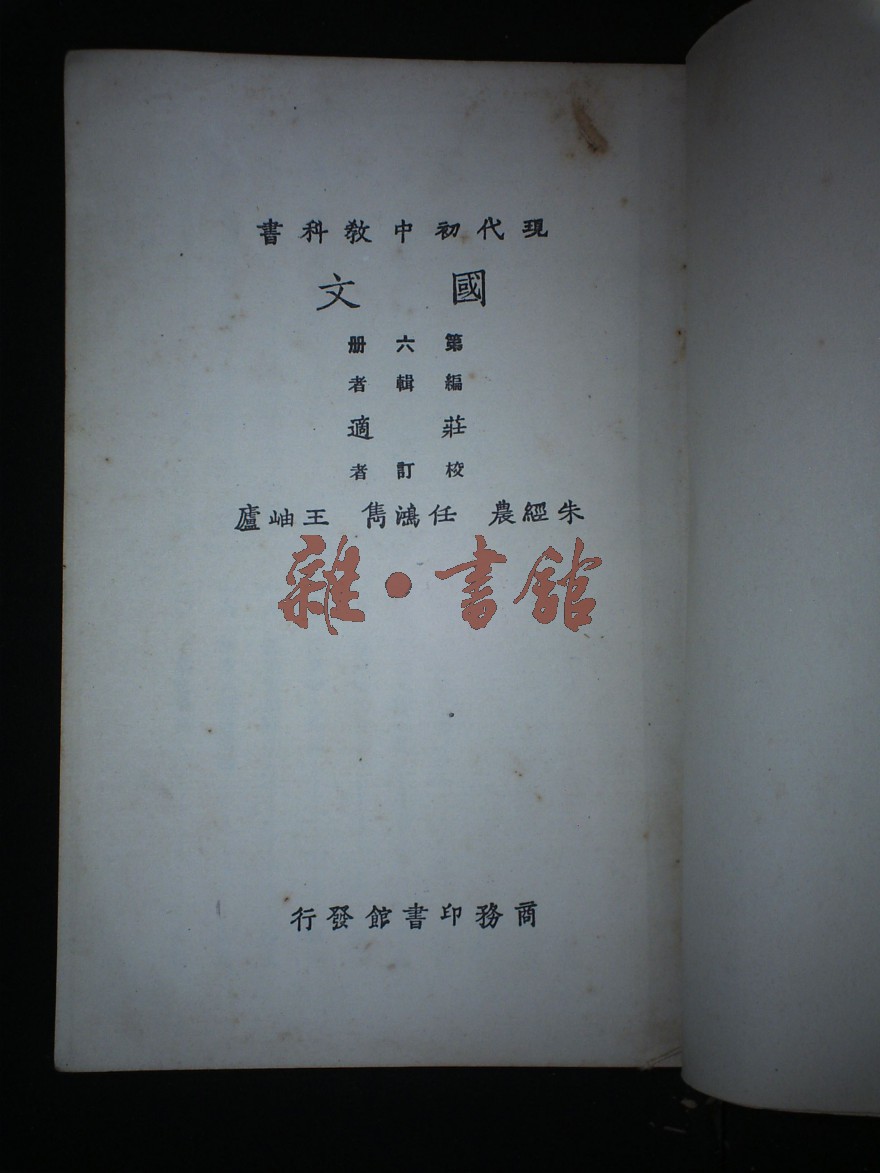 現代初中教科書
國文
第六册
編輯者
莊適
校訂者
朱經農 任鴻雋 王岫廬
雜·書館
商務印書館發行